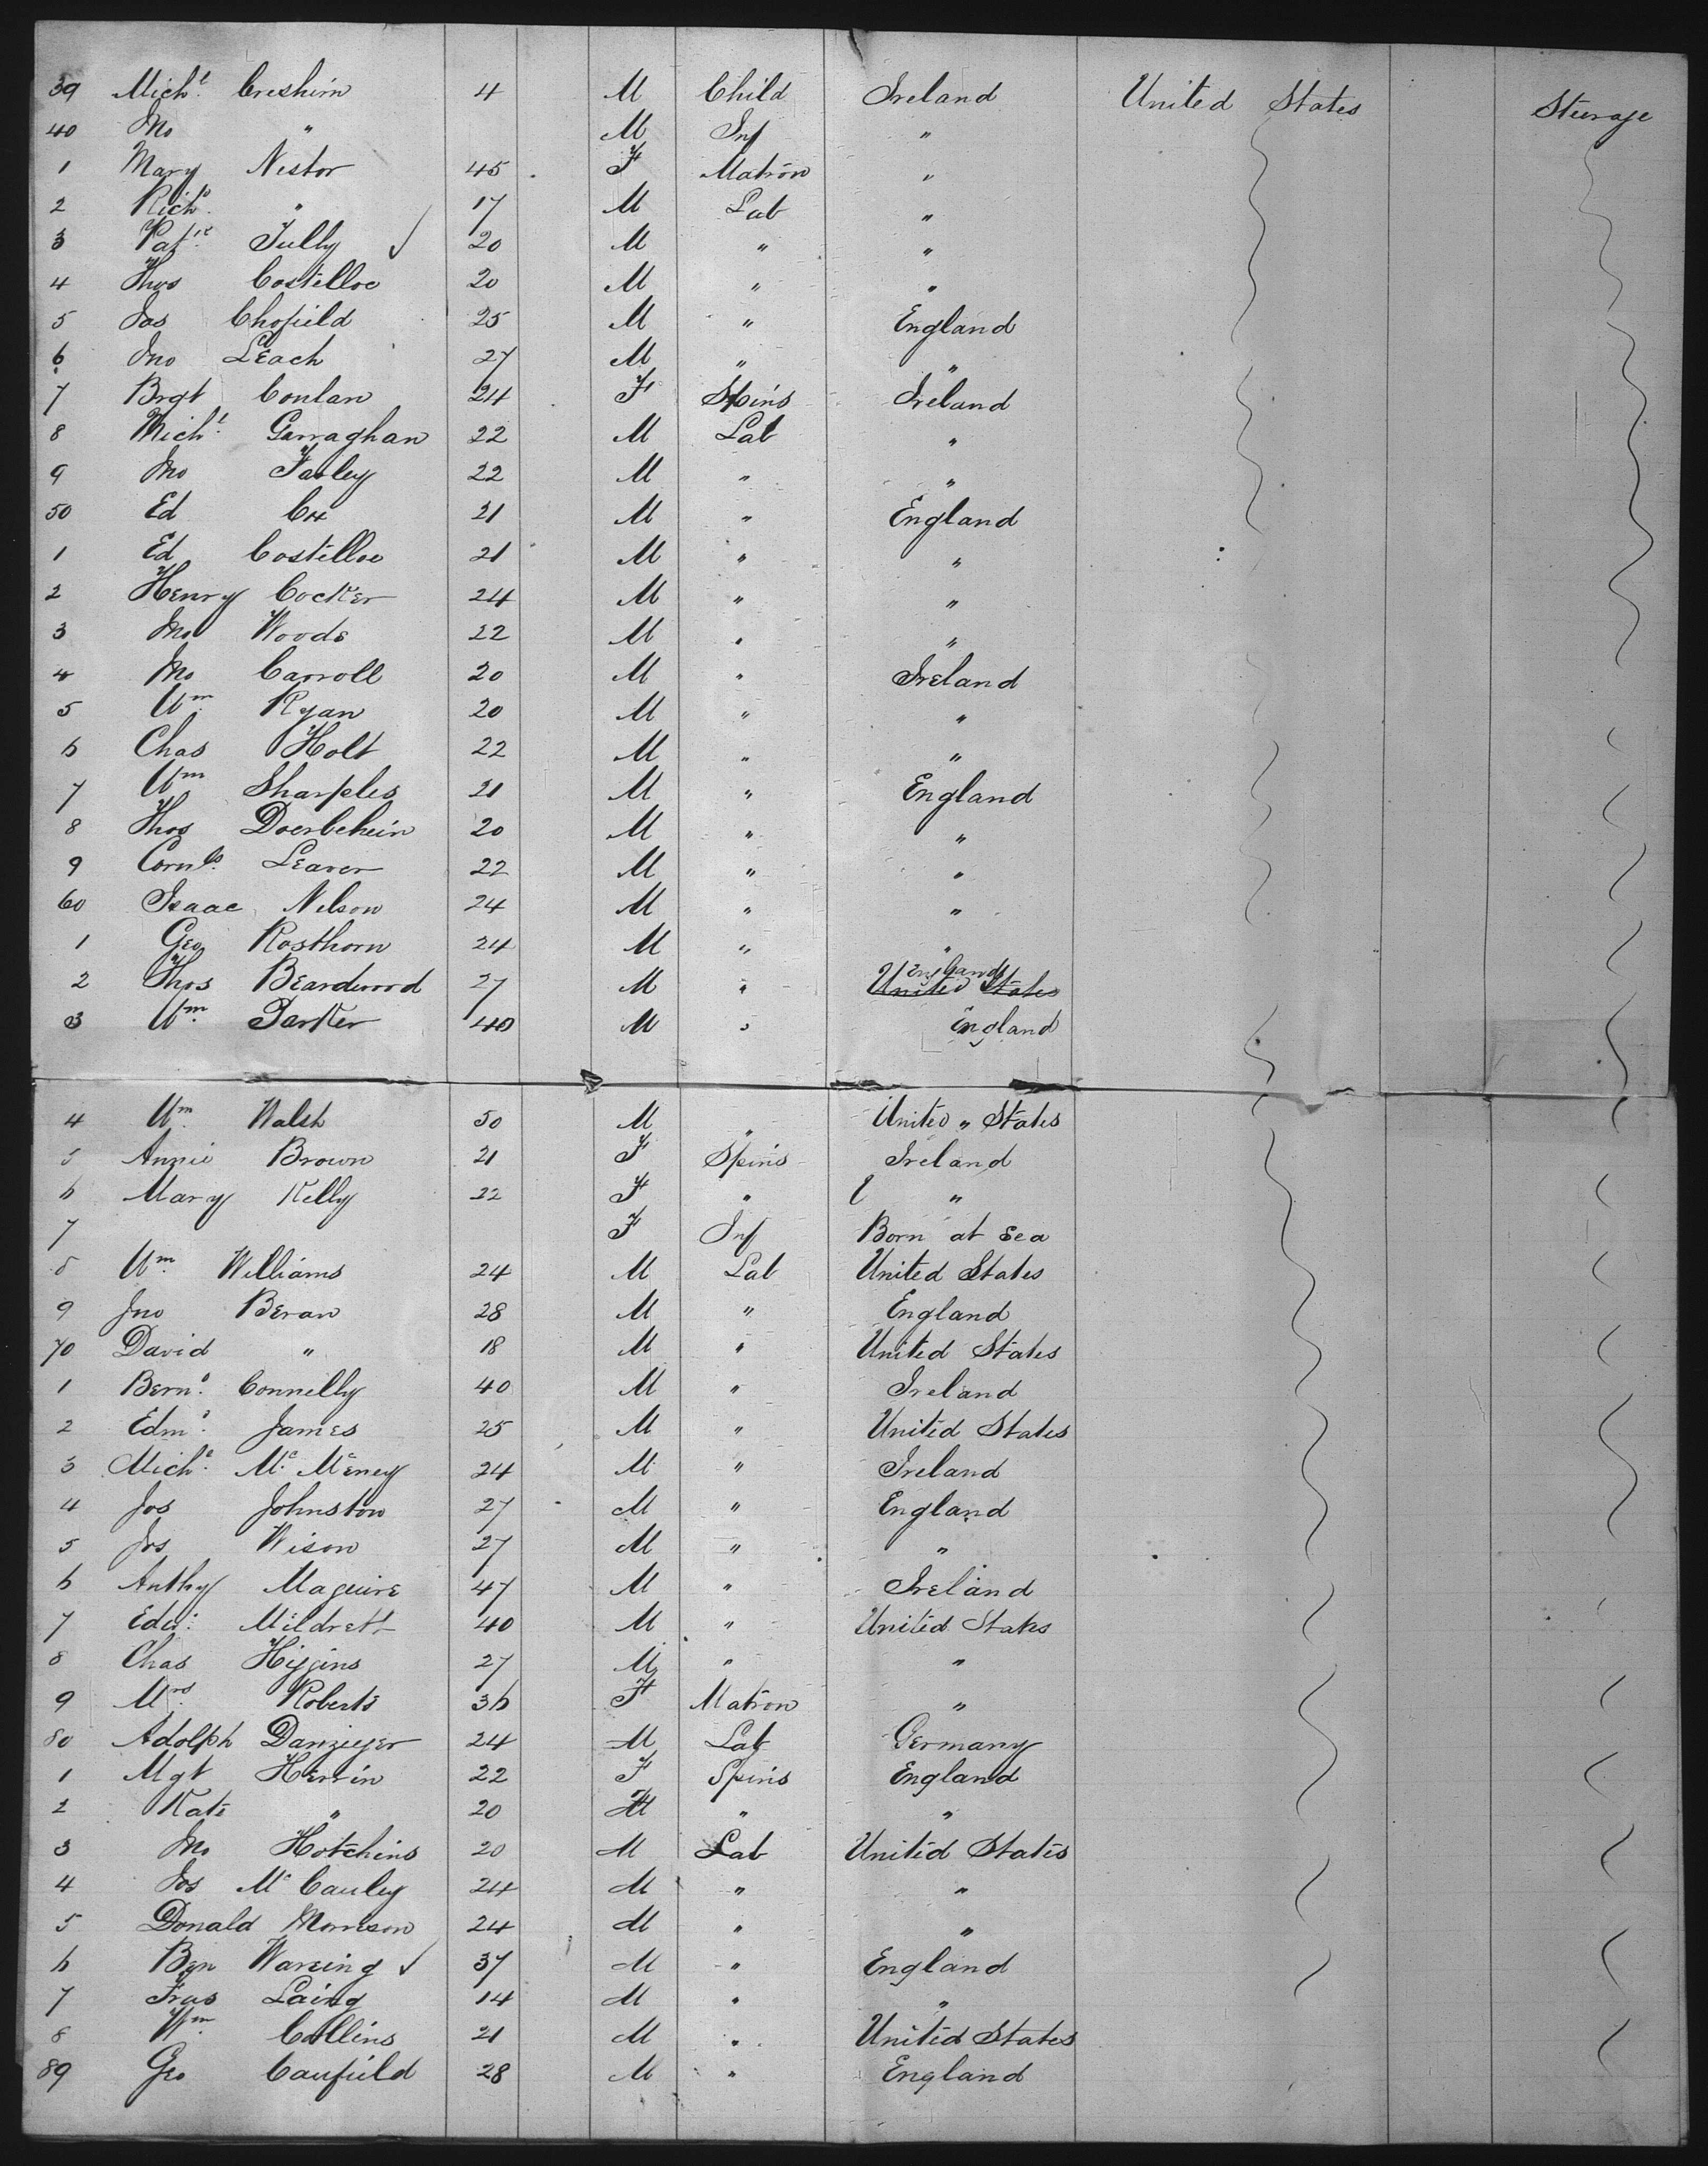 39 Michl Creshirn 4 M Child Ireland United States Steerage
40 Jno " M Inf "
1 Mary Nestor 45 F Matron "
2 Richd " 17 M Lab "
3 Patk Tully ✓ 20 M " "
4 Thos Costelloe 20 M " "
5 Jas Chofield 25 M " England
6 Jno Leach 27 M " "
7 Brgt Conlan 24 F Spins Ireland
8 Michl Garraghan 22 M Lab "
9 Jno Farley 22 M " "
50 Ed Cox 21 M " England
1 Ed Costelloe 21 M " "
2 Henry Cocker 24 M " "
3 Jno Woods 22 M " "
4 Jno Carroll 20 M " Ireland
5 Wm Ryan 20 M " "
6 Chas Holt 22 M " "
7 Wm Sharples 21 M " England
8 Thos 20 M " "
9 Cornls Leaver 22 M " "
60 Isaac Nelson 24 M " "
1 Geo Rosthorn 24 M " "
2 Thos Beardwood 27 M " England United States
3 Wm Parker 40 M " England
4 Wm Walsh 50 M " United " States
5 Annie Brown 21 F Spins Ireland
6 Mary Kelly 22 F " "
7 F Inf Born at Sea
8 Wm Williams 24 M Lab United States
9 Jno Beran 28 M " England
70 David " 18 M " United States
1 Bernd Connelly 40 M " Ireland
2 Edmd James 25 M " United States
3 Michl Mc Meney 24 M " Ireland
4 Jos Johnston 27 M " England
5 Jos Wison 27 M " "
6 Anthy Maguire 47 M " Ireland
7 Edwd Mildrett 40 M " United States
8 Chas Higgins 27 M " "
9 Mrs Roberts 36 F Matron "
80 Adolph Danzieger 24 M Lab Germany
1 Mgt Herrin 22 F Spins England
2 Kate " 20 F " "
3 Jno Hotchins 20 M Lab United States
4 Jos Mc Cauley 24 M " "
5 Donald Morrison 24 M " "
6 Ben Wareing ✓ 37 M " England
7 Fras Laing 14 M " "
8 Wm Collins 21 M " United States
89 Geo Caufield 28 M " England